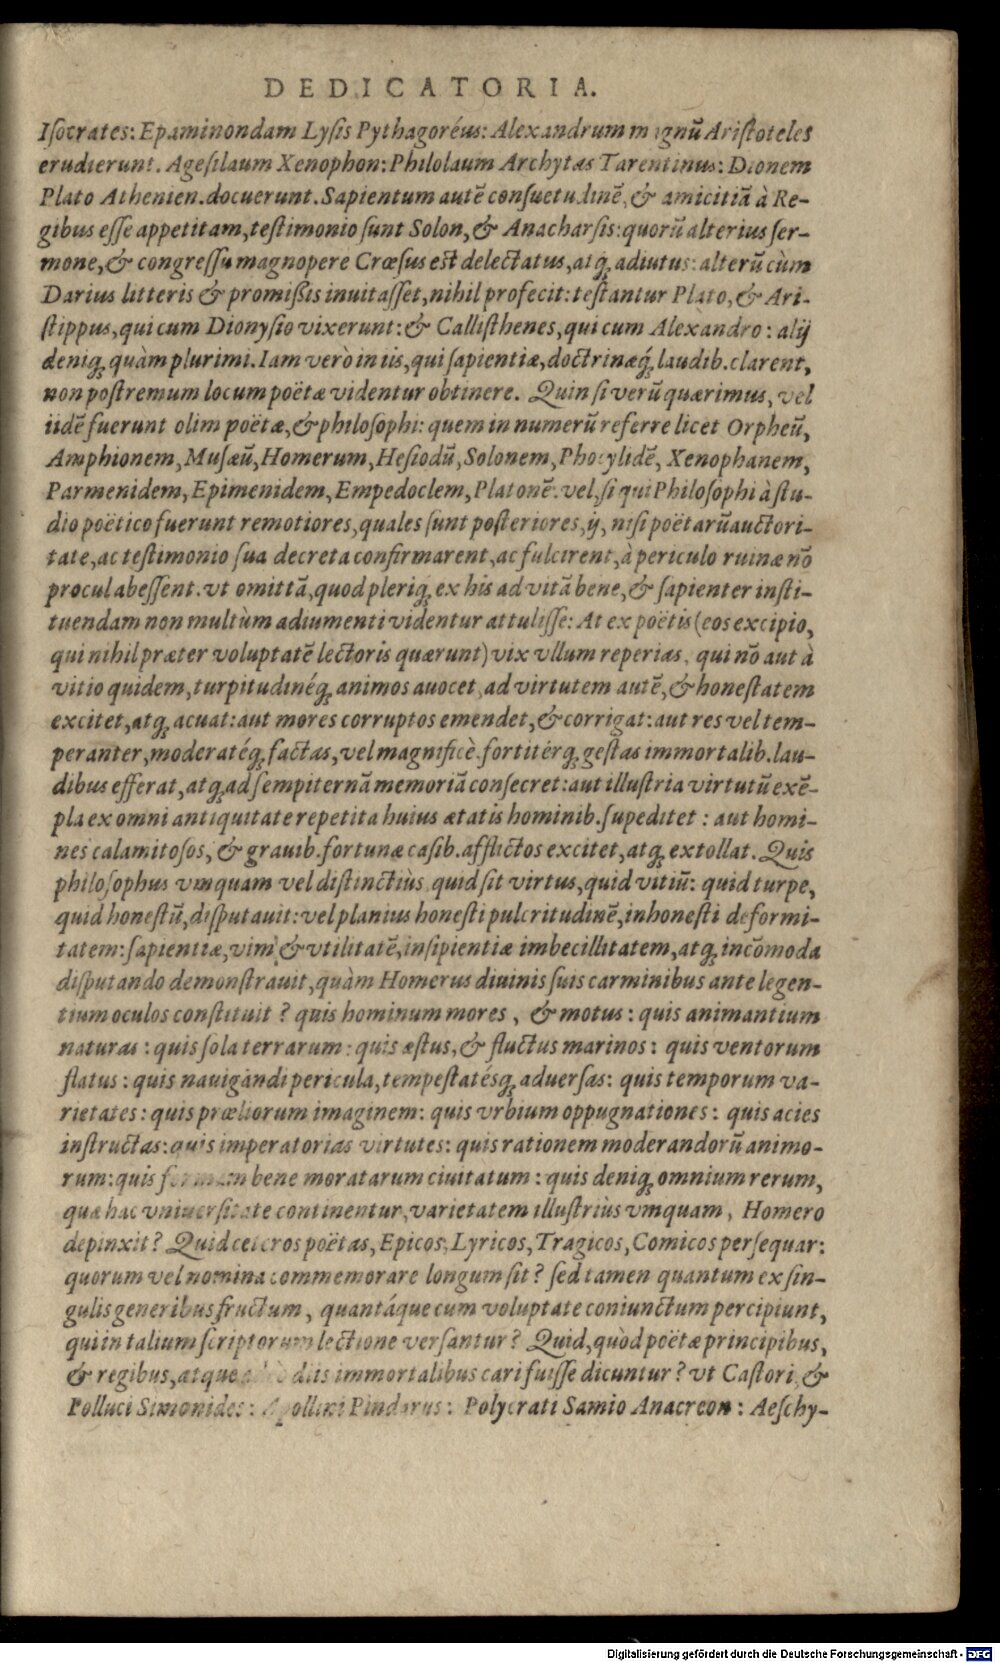 DEDICATORIA.
Iſocrates: Epaminondam Lyſis Pythagoréus: Alexandrum magnũ Ariſtoteles
erudierunt. Ageſilaum Xenophon: Philolaum Archytas Tarentinus: Dionem
Plato Athenien. docuerunt. Sapientum autẽ conſuetudinẽ, & amicitiã à Re-
gibus eſſe appetitam, teſtimonio ſunt Solon, & Anacharſis: quorũ alterius ſer-
mone, & congreſſu magnopere Crœſus eſt delectatus, atq; adiutus: alterũ cùm
Darius litteris & promiſsis inuitaſſet, nihil profecit: teſtantur Plato, & Ari-
ſtippus, qui cum Dionyſio vixerunt: & Calliſthenes, qui cum Alexandro: alij
deniq; quàm plurimi. Iam verò in iis, qui ſapientiæ, doctrinæq́; laudib. clarent,
non poſtremum locum poëtæ videntur obtinere. Quin ſi verũ quærimus, vel
iidẽ fuerunt olim poëtæ, & philoſophi: quem in numerũ referre licet Orpheũ,
Amphionem, Muſæũ, Homerum, Heſiodũ, Solonem, Phocylidẽ, Xenophanem,
Parmenidem, Epimenidem, Empedoclem, Platonẽ. vel, ſi qui Philoſophi à ſtu-
dio poëtico fuerunt remotiores, quales ſunt poſteriores, ij, niſi poëtarũ auctori-
tate, ac teſtimonio ſua decreta confirmarent, ac fulcirent, à periculo ruinæ nõ
procul abeſſent. vt omittã, quod pleriq; ex his ad vitã bene, & ſapienter inſti-
tuendam non multùm adiumenti videntur attuliſſe: At ex poëtis (eos excipio,
qui nihil præter voluptatẽ lectoris quærunt) vix vllum reperias, qui nõ aut à
vitio quidem, turpitudinéq; animos auocet, ad virtutem autẽ, & honeſtatem
excitet, atq; acuat: aut mores corruptos emendet, & corrigat: aut res vel tem-
peranter, moderatéq; factas, vel magnificè fortitérq; geſtas immortalib. lau-
dibus efferat, atq; ad ſempiternã memoriã conſecret: aut illuſtria virtutũ exẽ-
pla ex omni antiquitate repetita huius ætatis hominib. ſupeditet: aut homi-
nes calamitoſos, & grauib. fortunæ caſib. afflictos excitet, atq; extollat. Quis
philoſophus vmquam vel diſtinctiùs quid ſit virtus, quid vitiũ: quid turpe,
quid honeſtũ, diſputauit: vel planius honeſti pulcritudinẽ, inhoneſti deformi-
tatem: ſapientiæ, vim & vtilitatẽ, inſipientiæ imbecillitatem, atq; incõmoda
diſputando demonſtrauit, quàm Homerus diuinis ſuis carminibus ante legen-
tium oculos conſtituit? quis hominum mores, & motus: quis animantium
naturas: quis ſola terrarum: quis æſtus, & fluctus marinos: quis ventorum
flatus: quis nauigandi pericula, tempeſtatésq; aduerſas: quis temporum va-
rietates: quis præliorum imaginem: quis vrbium oppugnationes: quis acies
inſtructas: quis imperatorias virtutes: quis rationem moderandorũ animo-
rum: quis formam bene moratarum ciuitatum: quis deniq; omnium rerum,
quæ hac vniuerſitate continentur, varietatem illuſtriùs vmquam, Homero
depinxit? Quid ceteros poëtas, Epicos, Lyricos, Tragicos, Comicos perſequar:
quorum vel nomina commemorare longum ſit? ſed tamen quantum ex ſin-
gulis generibus fructum, quantáque cum voluptate coniunctum percipiunt,
qui in talium ſcriptorum lectione verſantur? Quid, quòd poëtæ principibus,
& regibus, atque adeò diis immortalibus cari fuiſſe dicuntur? vt Caſtori, &
Polluci Simonides: Apollini Pindarus: Polycrati Samio Anacreon: Aeſchy-
Digitalisierung gefördert durch die Deutsche Forschungsgemeinschaft - DFG